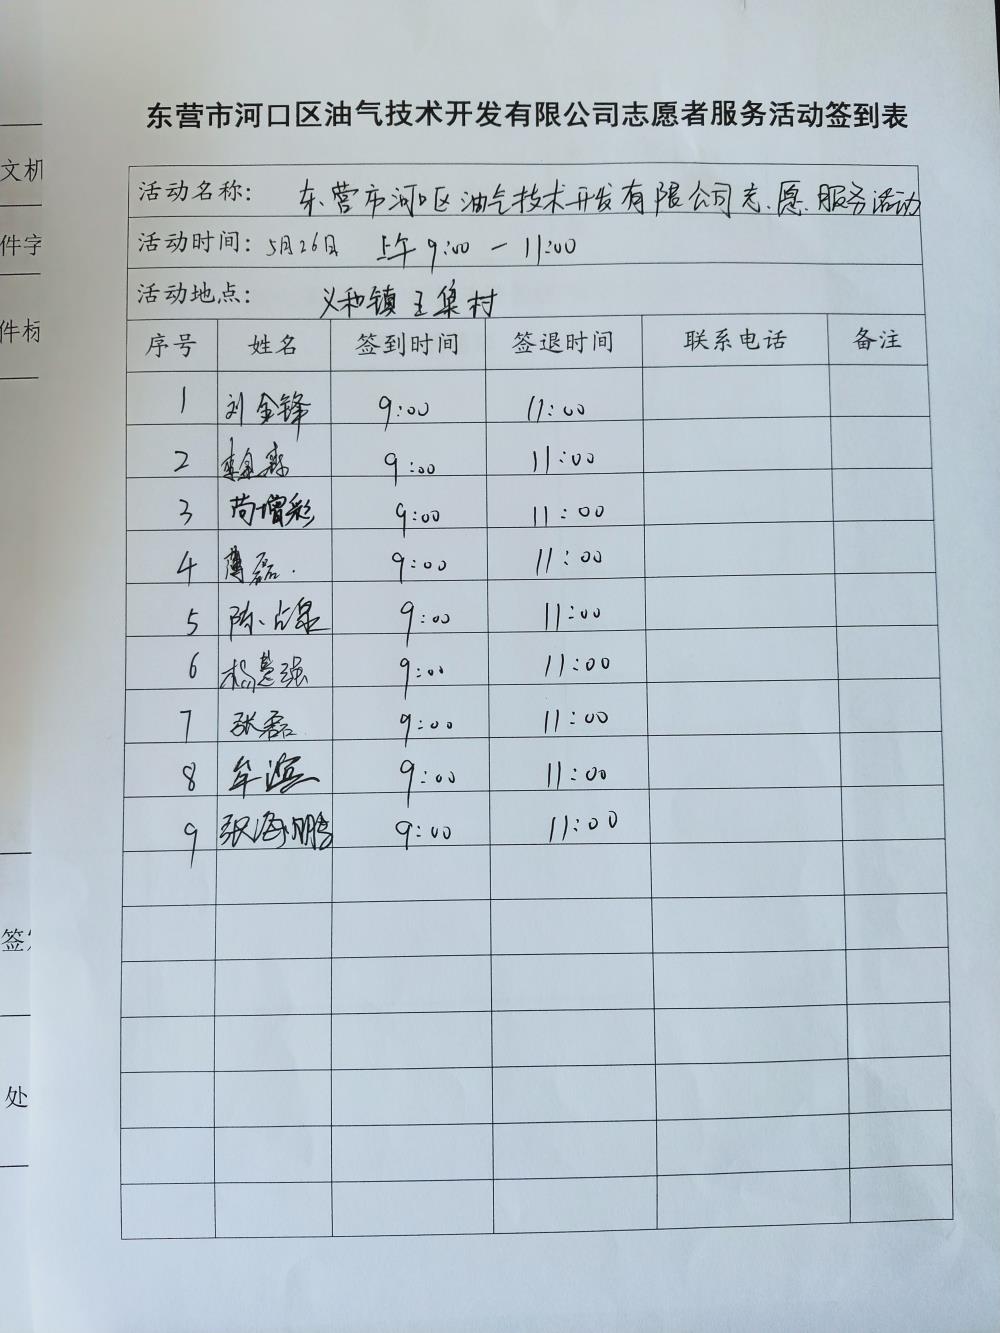 东营市河口区油气技术开发有限公司志愿者服务活动签到表
活动名称： 东营市河口区油气技术开发有限公司志愿服务活动
活动时间：5月26日 上午9:00 — 11:00
活动地点： 义和镇王集村
序号 姓名 签到时间 签退时间 联系电话 备注
1 刘金锋 9:00 11:00
2 9:00 11:00
3 苟增彩 9:00 11:00
4 薄磊 9:00 11:00
5 陈占泉 9:00 11:00
6 杨慧强 9:00 11:00
7 张磊 9:00 11:00
8 牟滨 9:00 11:00
9 张海鹏 9:00 11:00
文机
件字
件标
签发
处